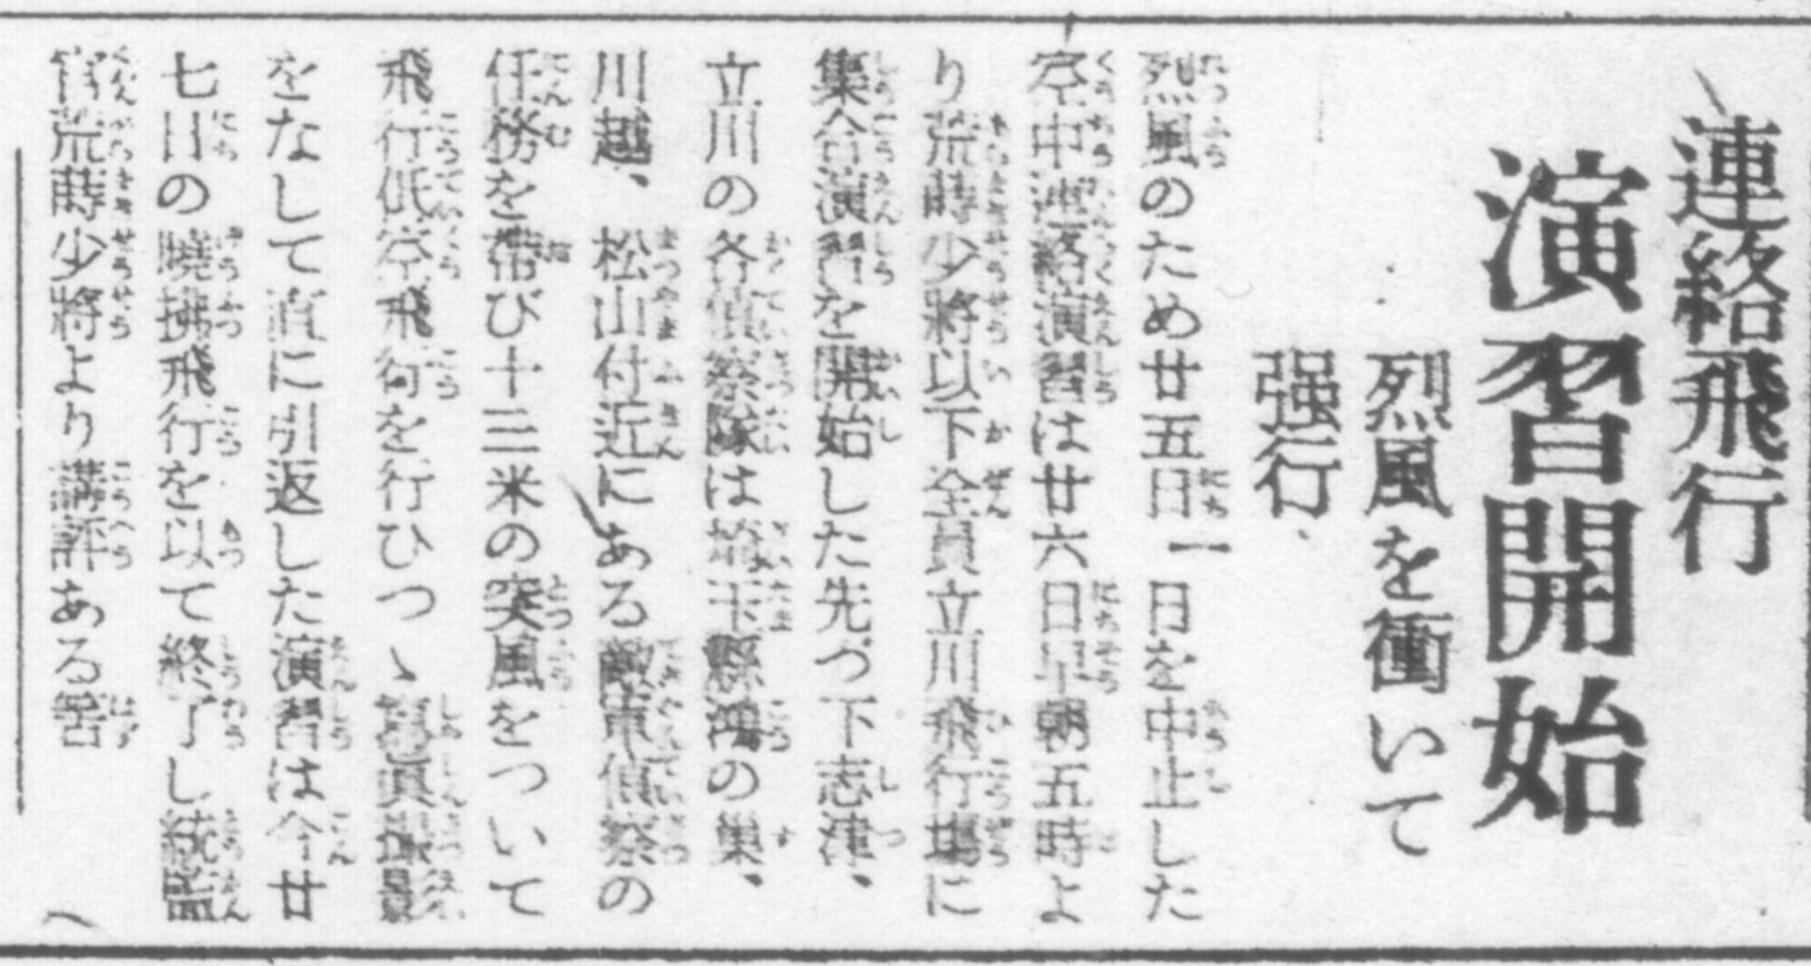 連絡飛行
演習開始
烈風を衝いて
强行
烈風のため廿五日一日を中止した
空中連絡演習は廿六日早朝五時よ
り荒蒔少將以下全員立川飛行場に
集合演習を開始した先づ下志津、
立川の各偵察隊は埼玉縣鴻の巣、
川越、松山付近にある敵軍偵察の
任務を帶び十三米の突風をついて
飛行低空飛行を行ひつゝ寫眞撮影
をなして直に引返した演習は今廿
七日の曉拂飛行を以て終了し統監
官荒蒔少將より講評ある筈